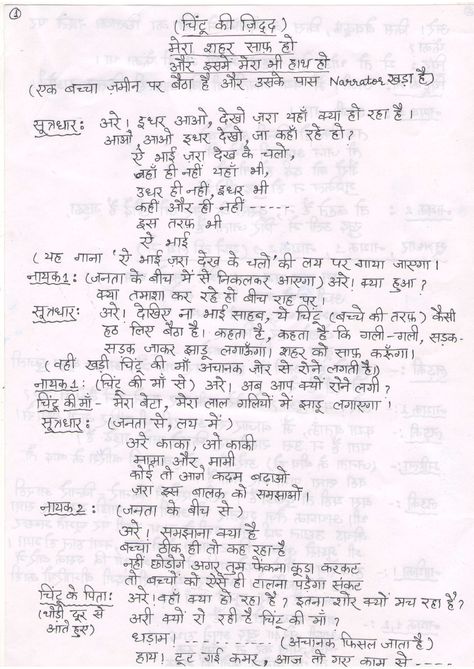 ①
(चिंटू की ज़िद्द)
मेरा शहर साफ़ हो
और इसमें मेरा भी हाथ हो
(एक बच्चा ज़मीन पर बैठा है और उसके पास Narrator खड़ा है)
सूत्रधार: अरे! इधर आओ, देखो ज़रा यहाँ क्या हो रहा है
आओ, आओ इधर देखो, जा कहाँ रहे हो?
ऐ भाई ज़रा देख के चलो,
वहाँ ही नहीं यहाँ भी,
उधर ही नहीं, इधर भी
कहीं और ही नहीं -----
इस तरफ़ भी
ऐ भाई
(यह गाना 'ऐ भाई ज़रा देख के चलो' की लय पर गाया जाएगा।
नायक1: (जनता के बीच में से निकलकर आएगा) अरे! क्या हुआ?
क्या तमाशा कर रहे हो बीच राह पर।
सूत्रधार: अरे! देखिए ना भाई साहब, ये चिंटू (बच्चे की तरफ़) कैसी
हठ लिए बैठा है। कहता है, कहता है कि गली-गली, सड़क-
सड़क जाकर झाड़ू लगाऊँगा। शहर को साफ़ करूँगा।
(वहीं खड़ी चिंटू की माँ अचानक ज़ोर से रोने लगती है।)
नायक1: (चिंटू की माँ से) अरे! अब आप क्यों रोने लगी?
चिंटू की माँ- मेरा बेटा, मेरा लाल गलियों में झाड़ू लगाएगा।
सूत्रधार: (जनता से, लय में)
अरे काका, ओ काकी
मामा और मामी
कोई तो आगे कदम बढ़ाओ
ज़रा इस बालक को समझाओ।
नायक2: (जनता के बीच से)
अरे! समझाना क्या है
बच्चा ठीक ही तो कह रहा है
नहीं छोड़ोगे अगर तुम फेंकना कूड़ा करकट
तो बच्चों को ऐसे ही टालना पड़ेगा संकट
चिंटू के पिता: अरे! वहाँ क्या हो रहा है? इतना शोर क्यों मच रहा है?
(थोड़ी दूर से आते हुए) अरी क्यों रो रही है चिंटू की माँ?
धड़ाम। ------- (अचानक फिसल जाता है)
हाय! टूट गई कमर, आज तो गए काम से -----